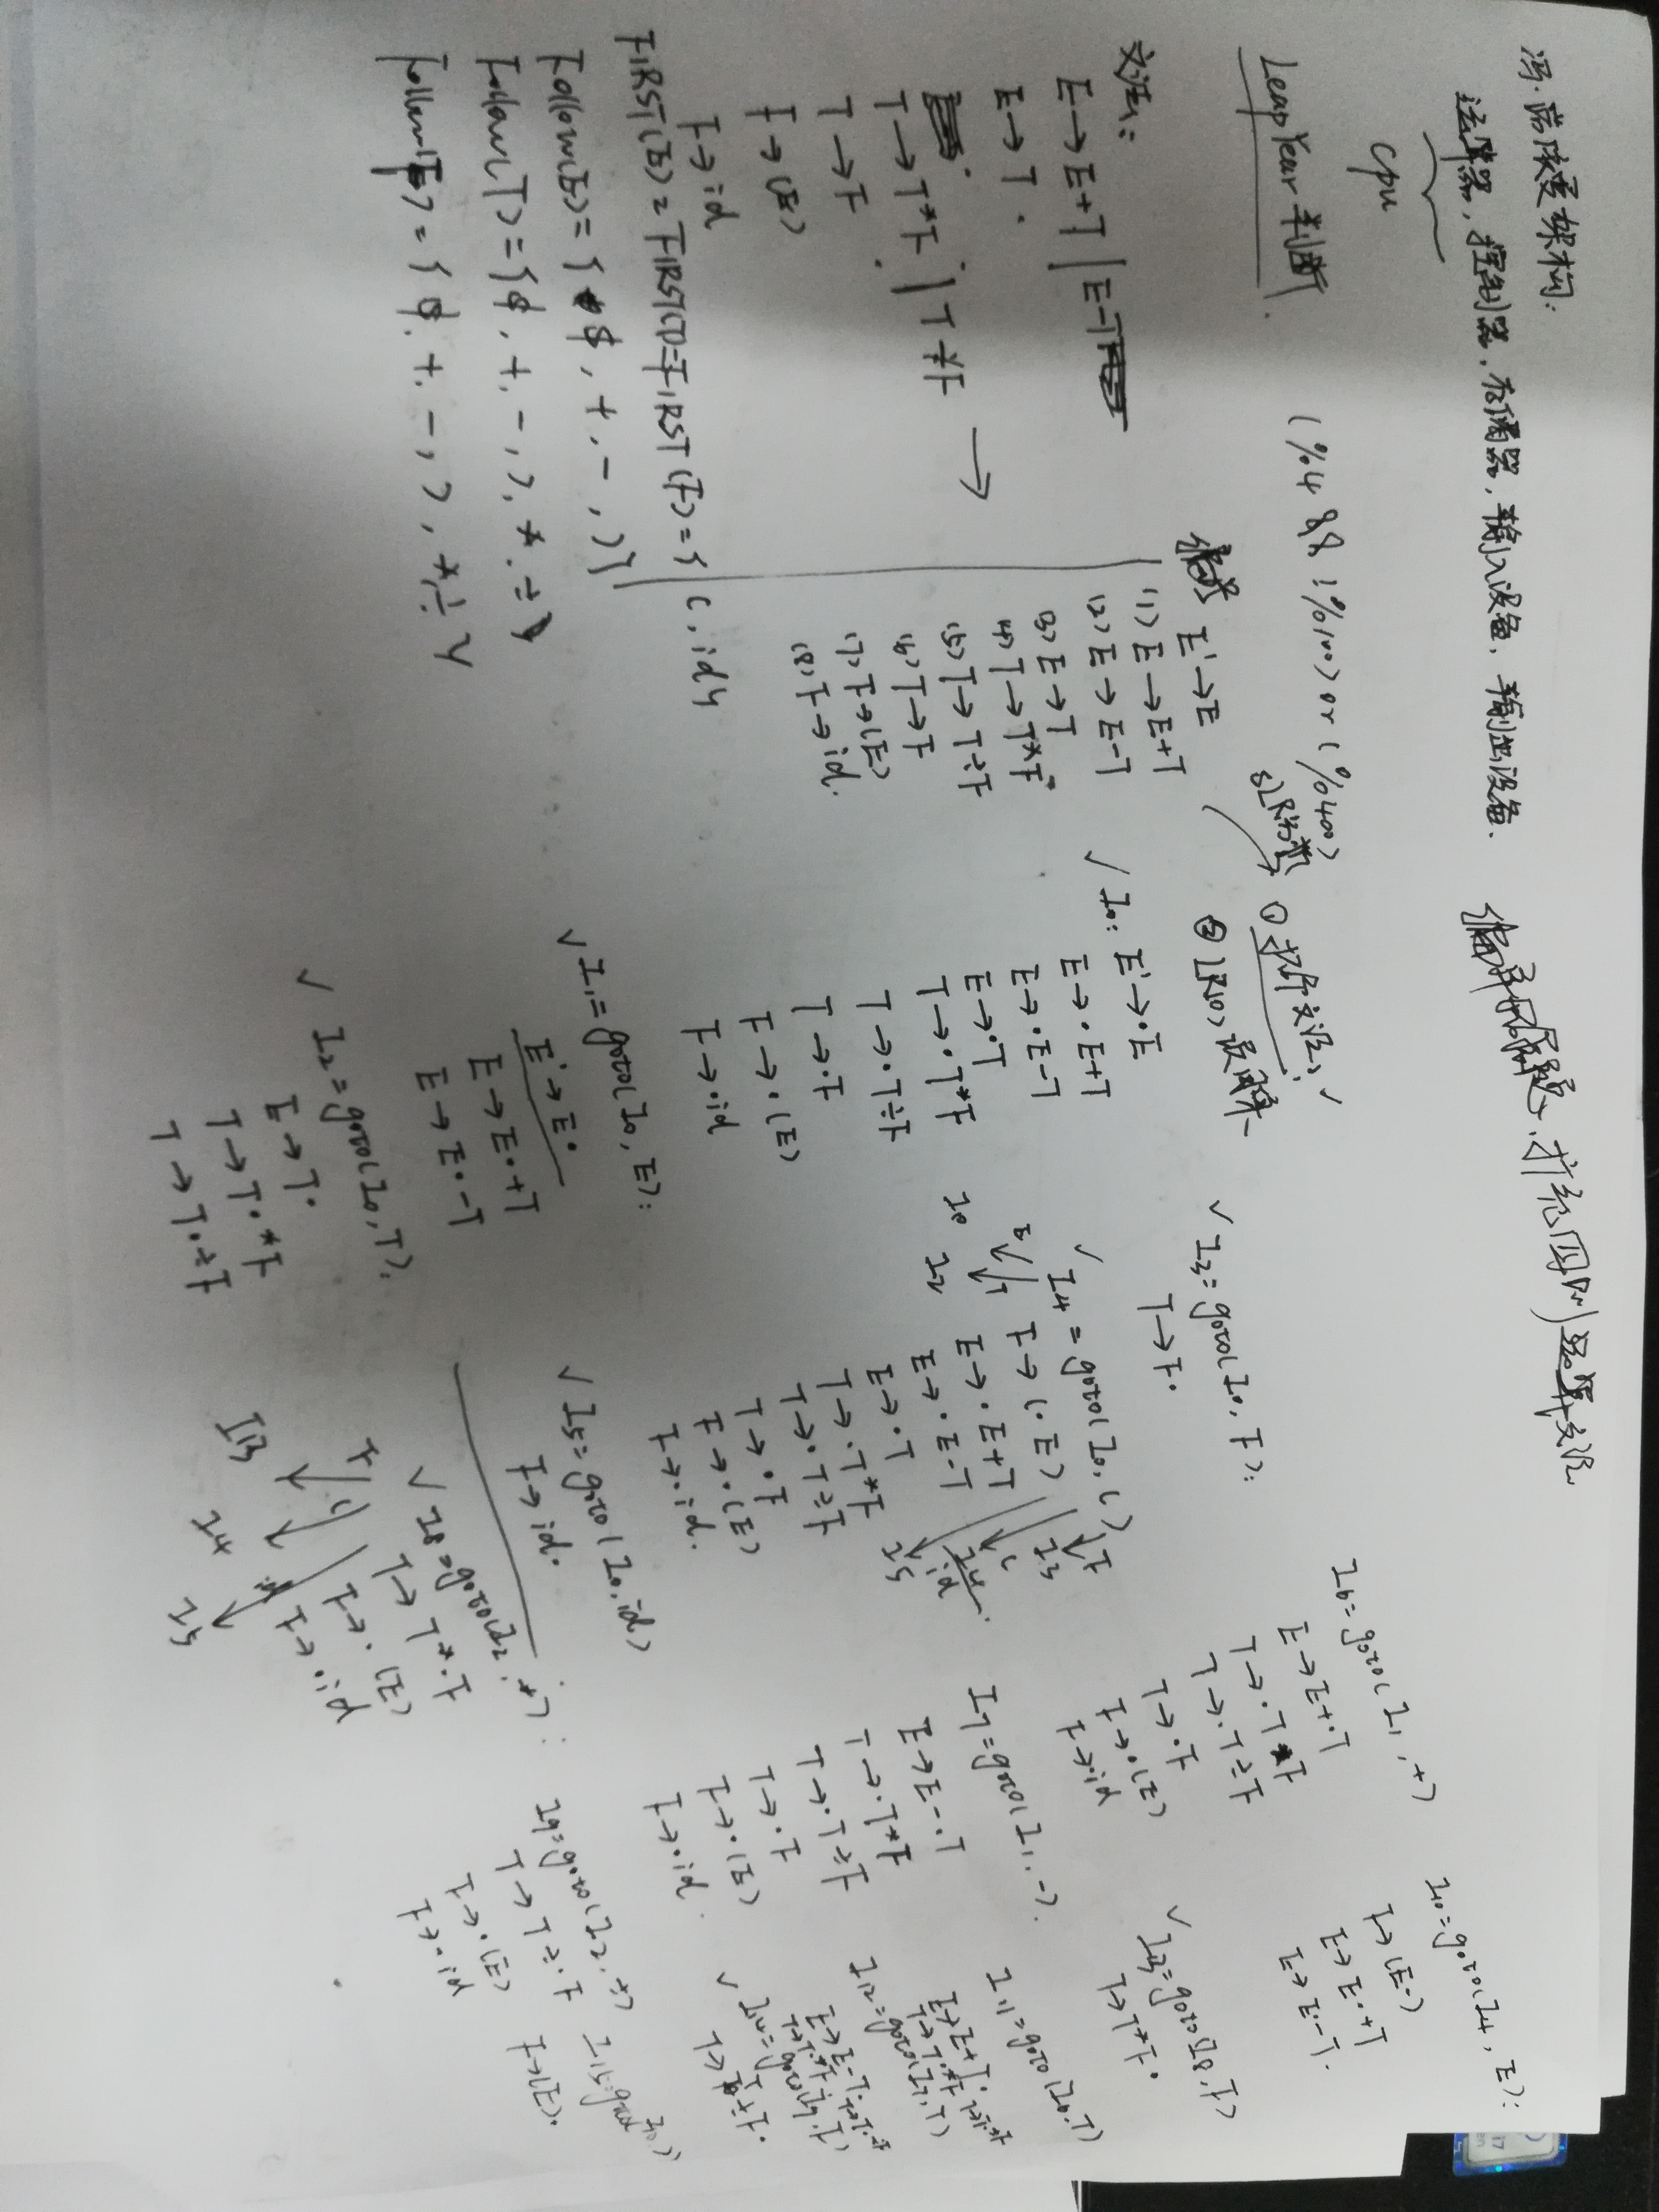 冯·诺依曼架构:
运算器, 控制器, 存储器, 输入设备, 输出设备.
cpu
Leap Year 判断
(%4 && !%100) or (%400)
文法:
E→E+T | E-T
E→T.
T→T*F | T÷F
T→F
F→(E)
F→id
FIRST(E)=FIRST(T)=FIRST(F)={(, id}
Follow(E)={$, +, -, )}
Follow(T)={$, +, -, ), *, ÷}
Follow(F)={$, +, -, ), *, ÷}
E'→E
(1) E→E+T
(2) E→E-T
(3) E→T
(4) T→T*F
(5) T→T÷F
(6) T→F
(7) F→(E)
(8) F→id.
SLR分析
① 扩展文法 ✓
② LR(0)
四则运算文法
✓ I0: E'→·E
E→·E+T
E→·E-T
E→·T
T→·T*F
T→·T÷F
T→·F
F→·(E)
F→·id
✓ I1=goto(I0, E):
E'→E·
E→E·+T
E→E·-T
✓ I2=goto(I0, T):
E→T·
T→T·*F
T→T·÷F
✓ I3=goto(I0, F):
T→F·
✓ I4=goto(I0, ()
F→(·E)
E→·E+T
E→·E-T
E→·T
T→·T*F
T→·T÷F
T→·F
F→·(E)
F→·id.
T
I2
F
I3
(
I4
id
I5
✓ I5=goto(I0, id)
F→id·
I6=goto(I1, +)
E→E+·T
T→·T*F
T→·T÷F
T→·F
F→·(E)
F→·id
I7=goto(I1, -).
E→E-·T
T→·T*F
T→·T÷F
T→·F
F→·(E)
F→·id
✓ I8=goto(I2, *):
T→T*·F
F→·(E)
F→·id
F
(
I13
I4
I5
I9=goto(I2, ÷)
T→T÷·F
F→·(E)
F→·id
I10=goto(I4, E):
F→(E·)
E→E·+T
E→E·-T.
✓ I13=goto(I8, F)
T→T*F·
I11=goto(I6, T)
E→E+T·
T→T·*F T→T·÷F
I12=goto(I7, T)
E→E-T·
T→T·*F T→T·÷F
✓ I14=goto(I9, F)
T→T÷F·
I15=goto(I10, ))
F→(E)·